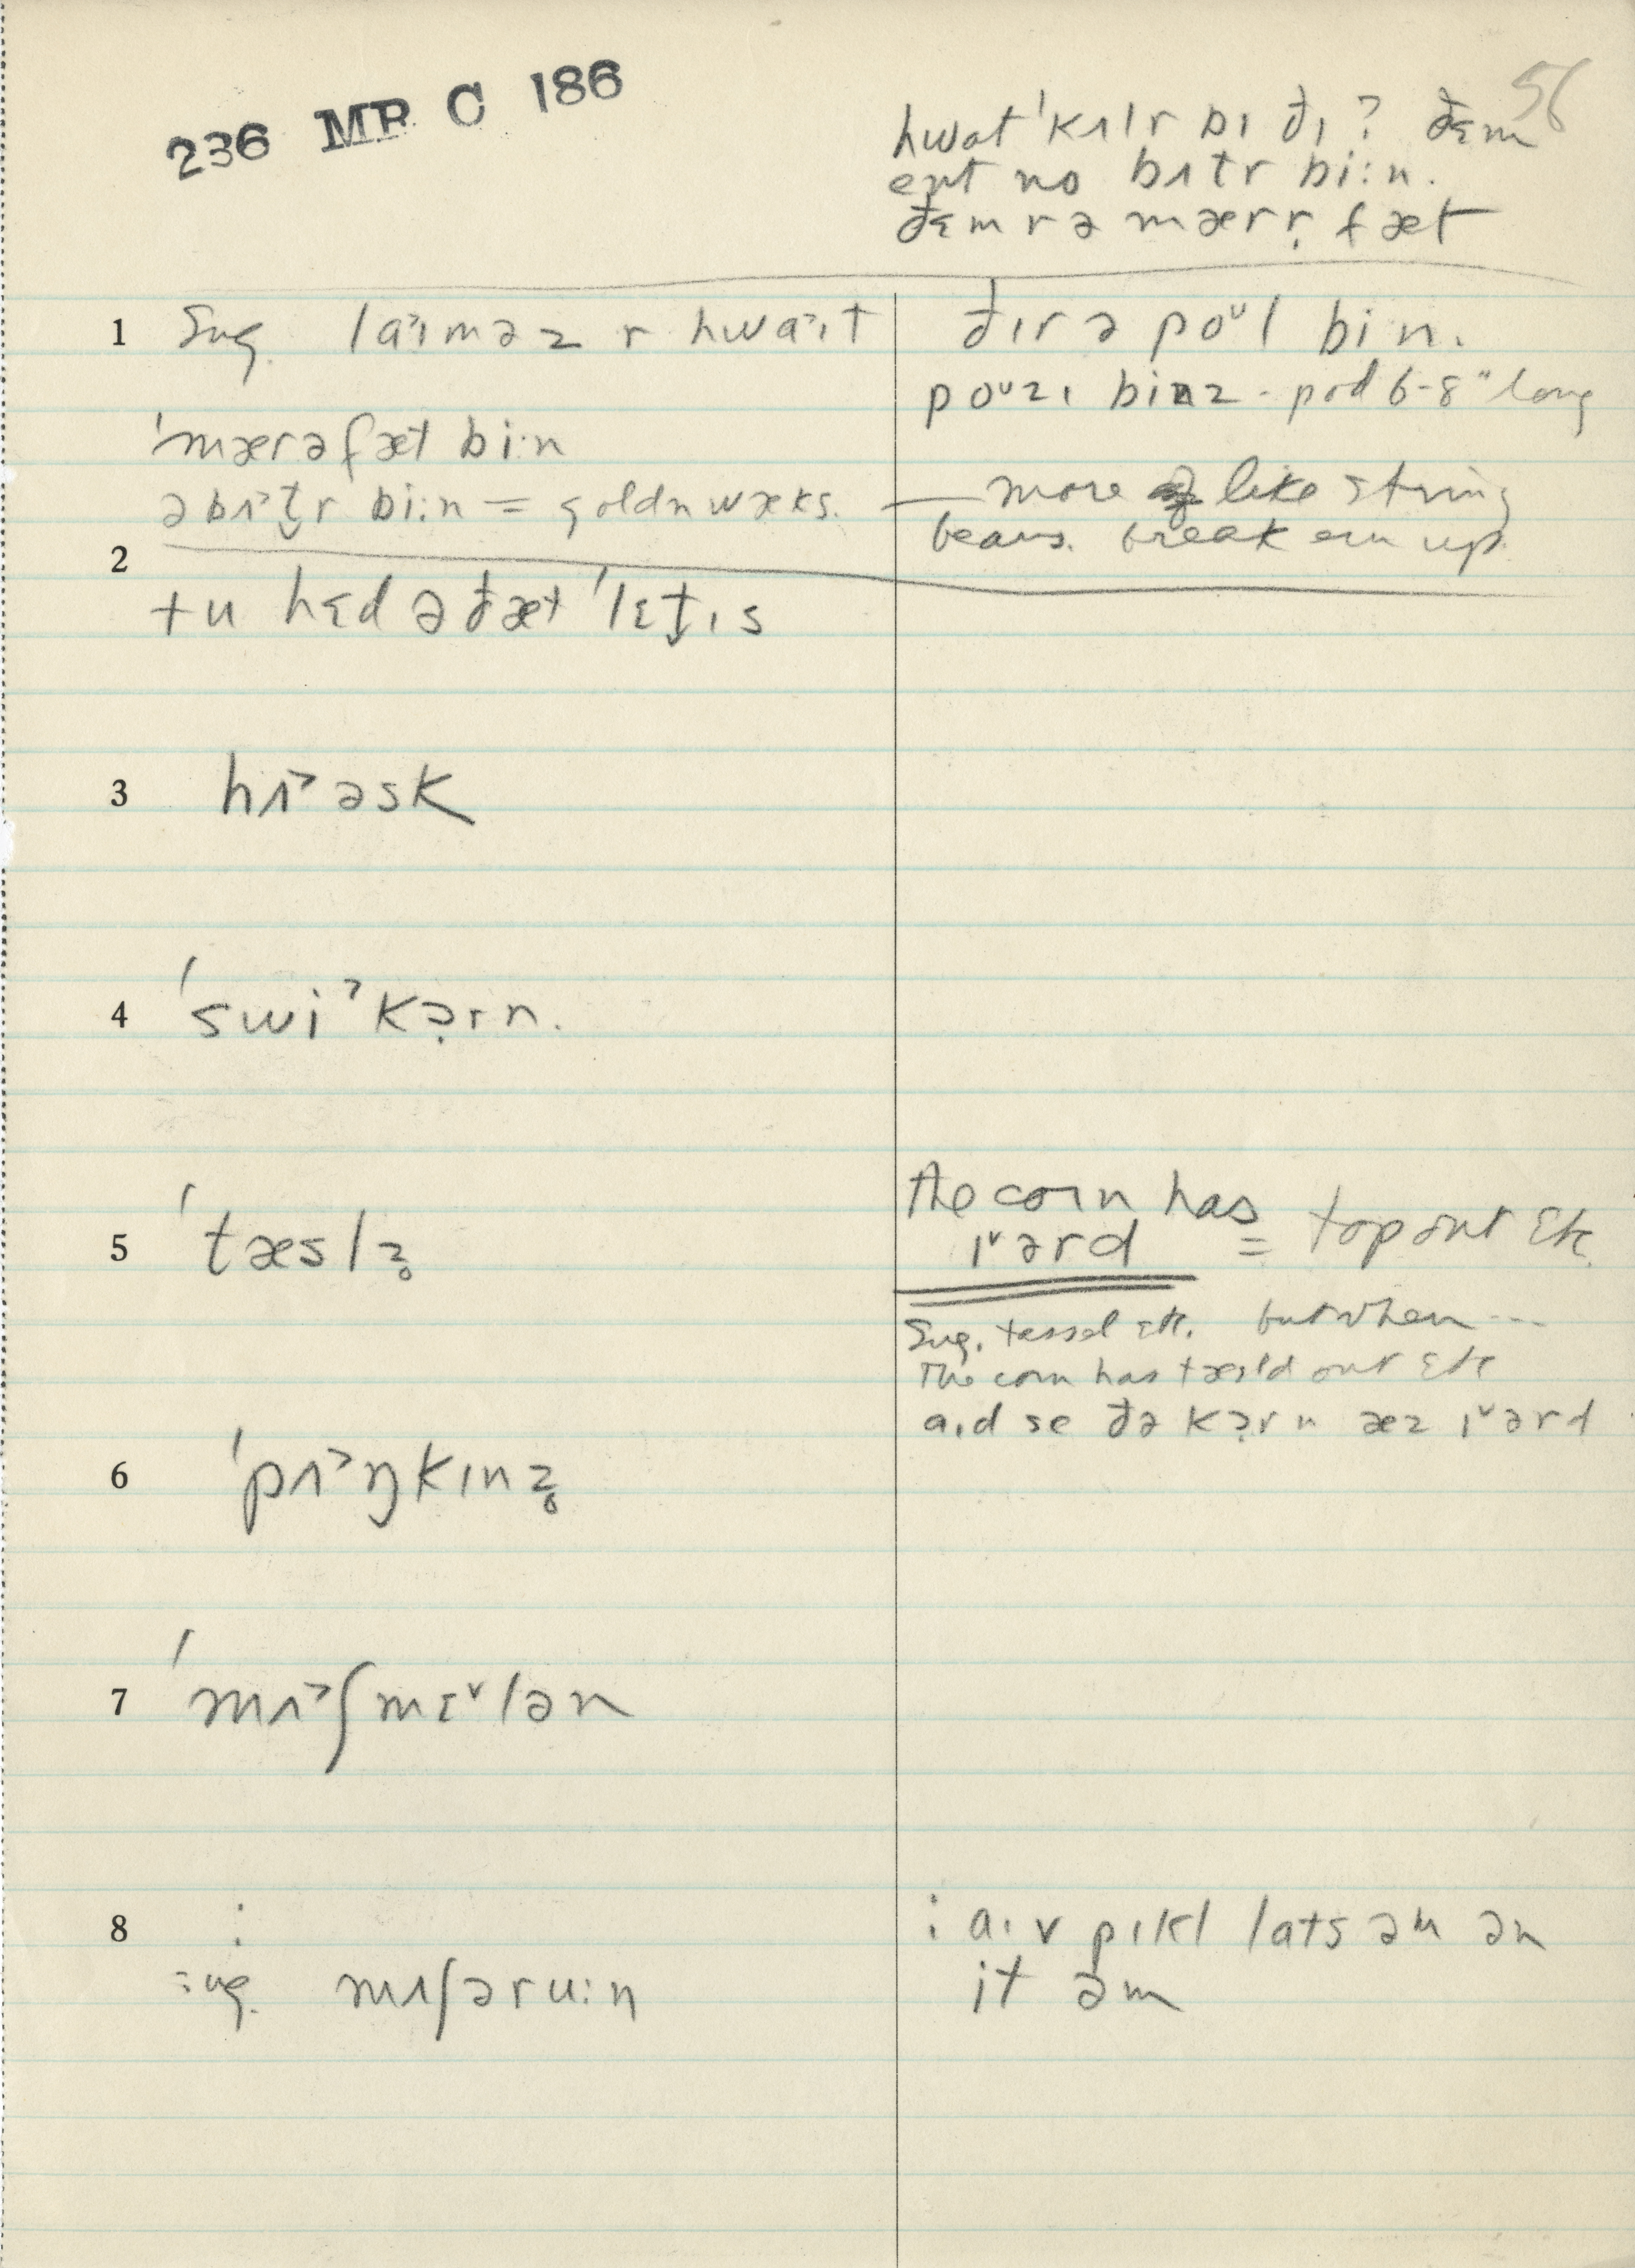 236 MP C 186
56
hwɑt ˈkʌlr bɪ ðɪ? ðɛm
ent no bʌtr bi:n.
ðɛm r ə mærr̩ fæt
1 Sug. laˀɪməz r hwaˀɪt
ðɪr ə poᵛl bin.
poᵘzɪ binz - pod 6-8" long
ˈmærəfæt bi:n
ə bʌˀt̬r bi:n = goldn wæks.
— more like string
beans. break em up.
2 tu hɛd ə ðæt ˈlɛt̬ɪs
3 hʌˀəsk
4 ˈswiˀkə̣rn.
5 ˈtæslz̥
the corn has
ɪᵛərd = top out etc
Sug. tassel etc. but when ---
The corn has tæsld out etc
aɪd se ðə kə̣rn æz ɪᵛərd
6 ˈpʌˀŋkɪnz̥
7 ˈmʌˀʃmɛᵛlən
8 :
sug. mʌʃəru:n
: aɪv pɪkl lɑts əm ən
it əm